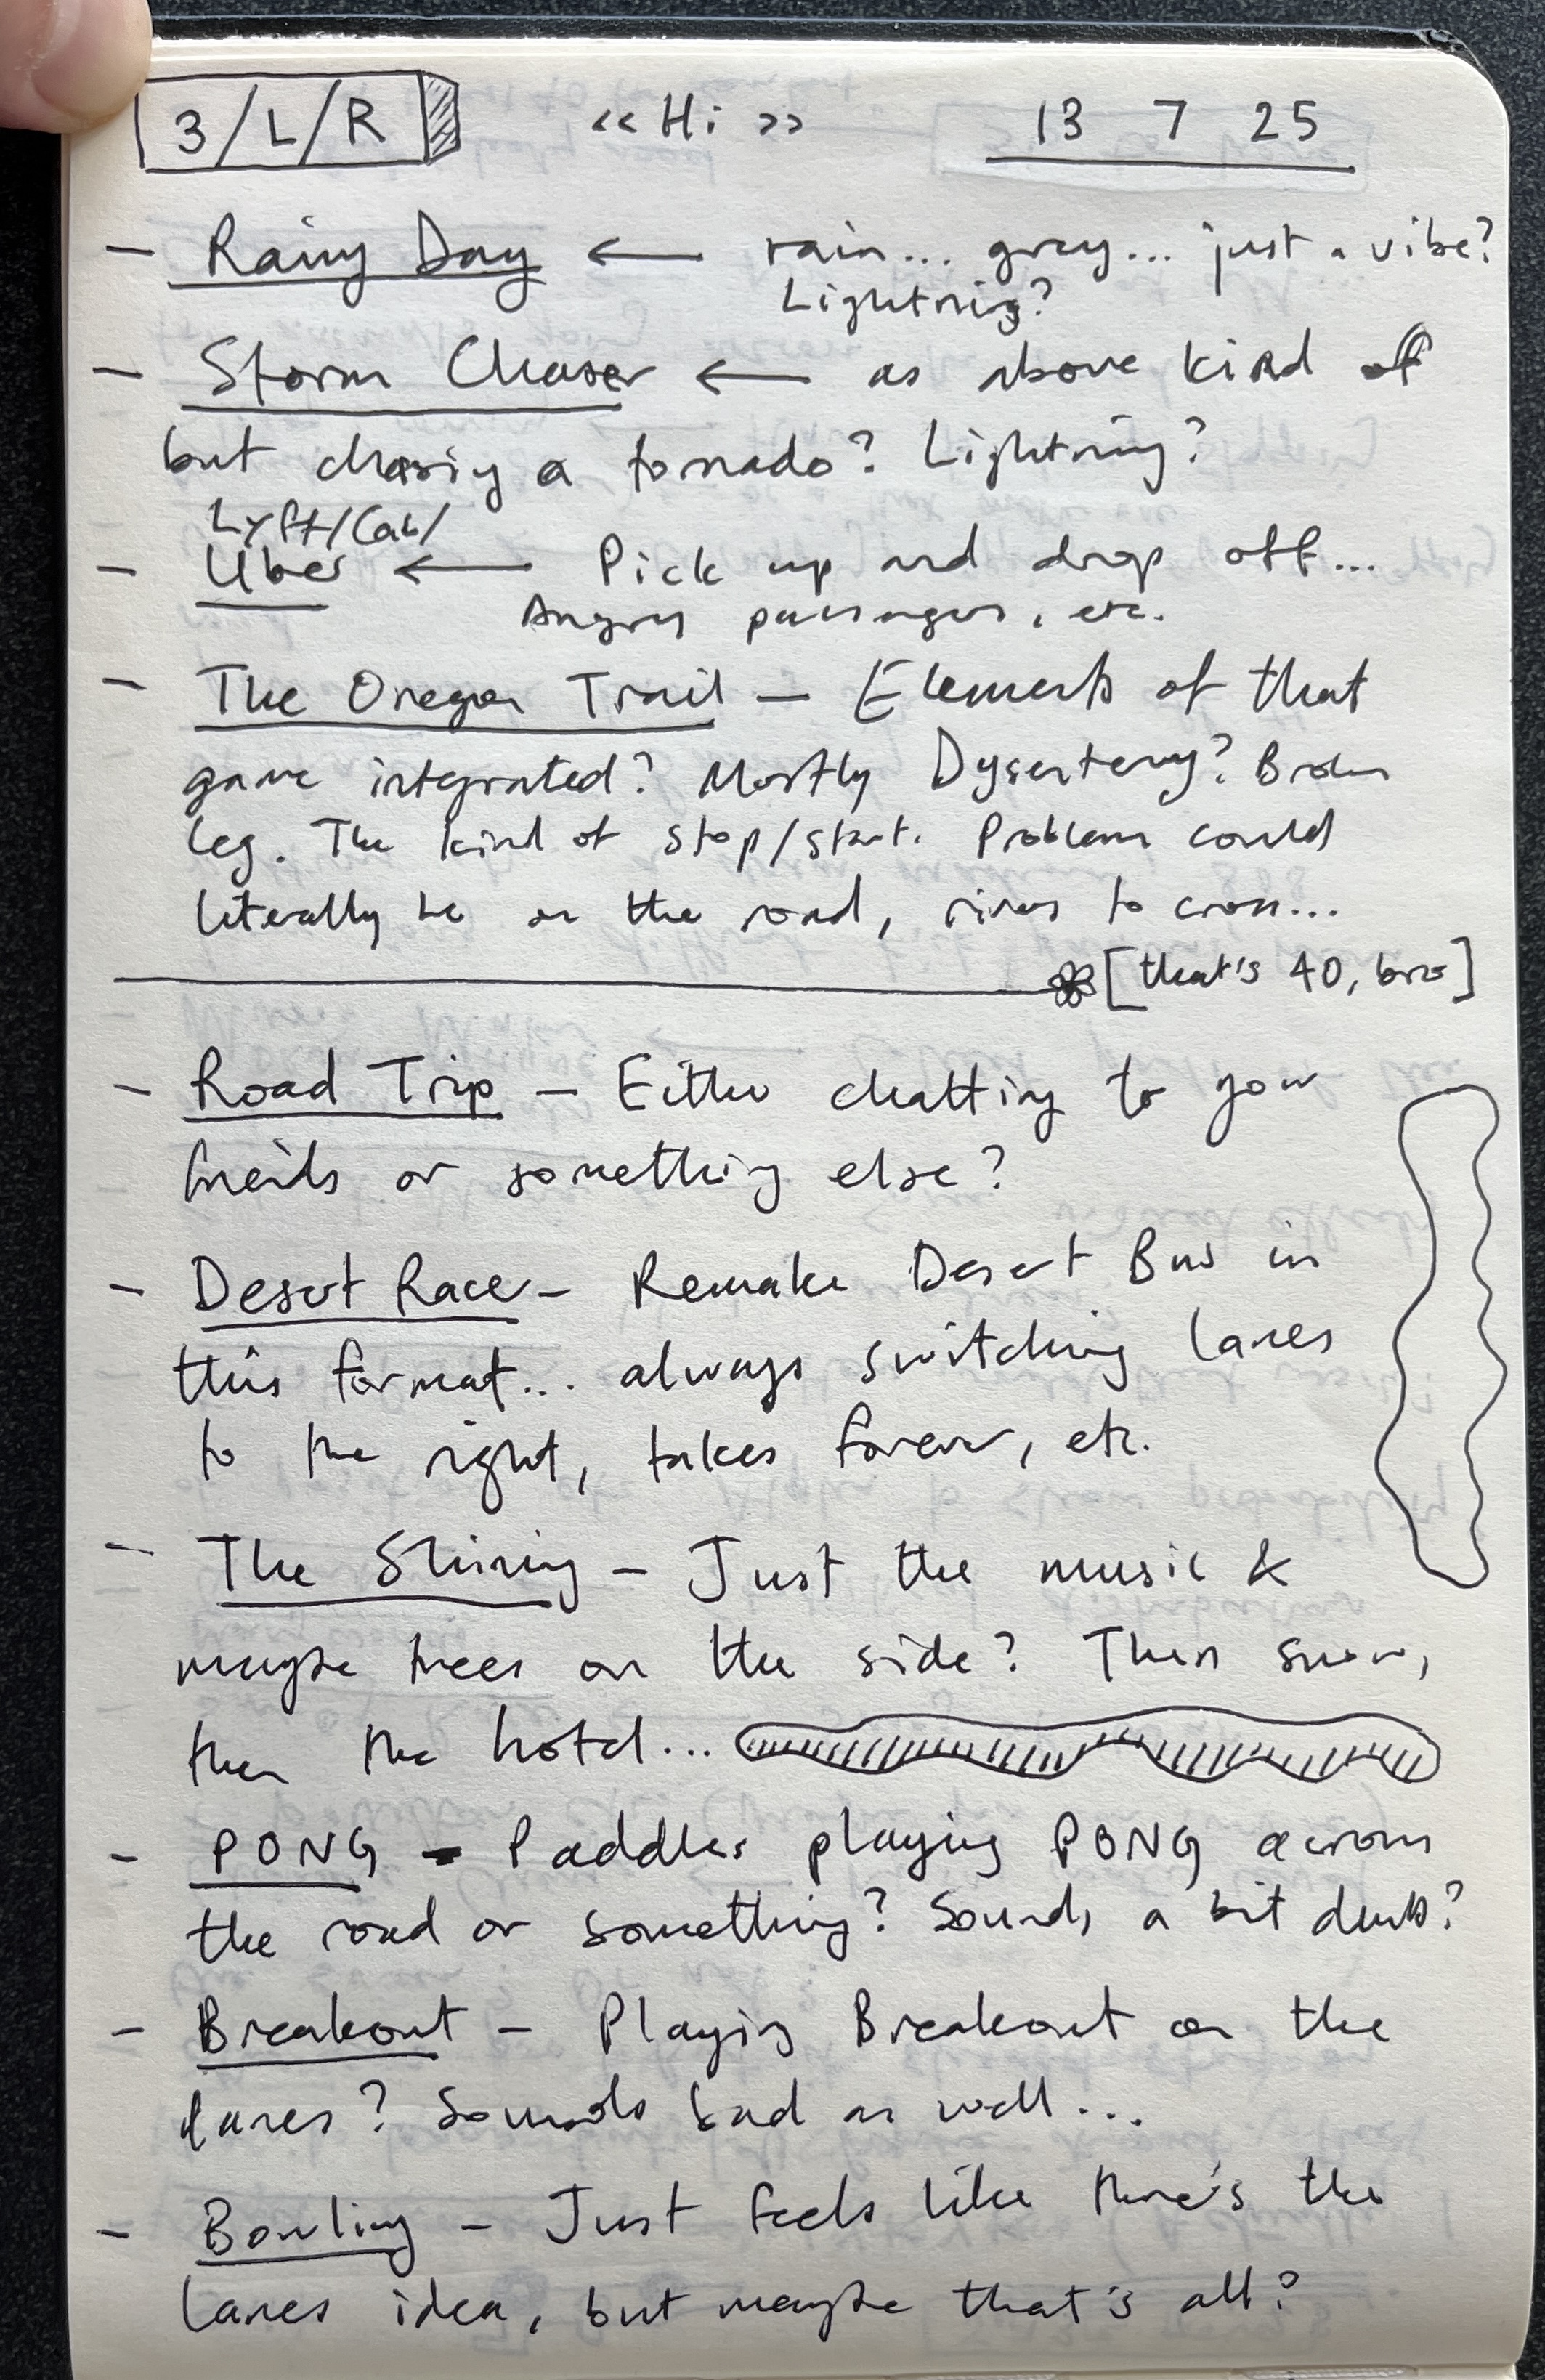 3/L/R << Hi >> 13 7 25
- Rainy Day ← rain... grey... just a vibe?
Lightning?
- Storm Chaser ← as above kind of
but chasing a tornado? Lightning?
Lyft/Cab/
- Uber ← Pick up and drop off...
Angry passengers, etc.
- The Oregon Trail - Elements of that
game integrated? Mostly Dysentery? Broken
leg. The kind of stop/start. Problem could
literally be on the road, rivers to cross...
[that's 40, bro]
- Road Trip - Either chatting to your
friends or something else?
- Desert Race - Remake Desert Bus in
this format... always switching lanes
to the right, takes forever, etc.
- The Shining - Just the music &
maybe trees on the side? Then snow,
then the hotel...
- PONG - Paddles playing PONG across
the road or something? Sounds a bit dumb?
- Breakout - Playing Breakout on the
lanes? Sounds bad as well...
- Bowling - Just feels like there's the
lanes idea, but maybe that's all?